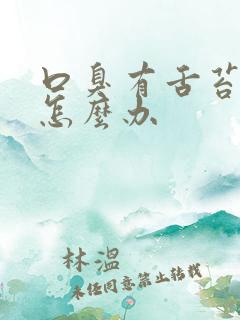 口臭有舌苔
怎麼办
林溫
未经同意禁止转载